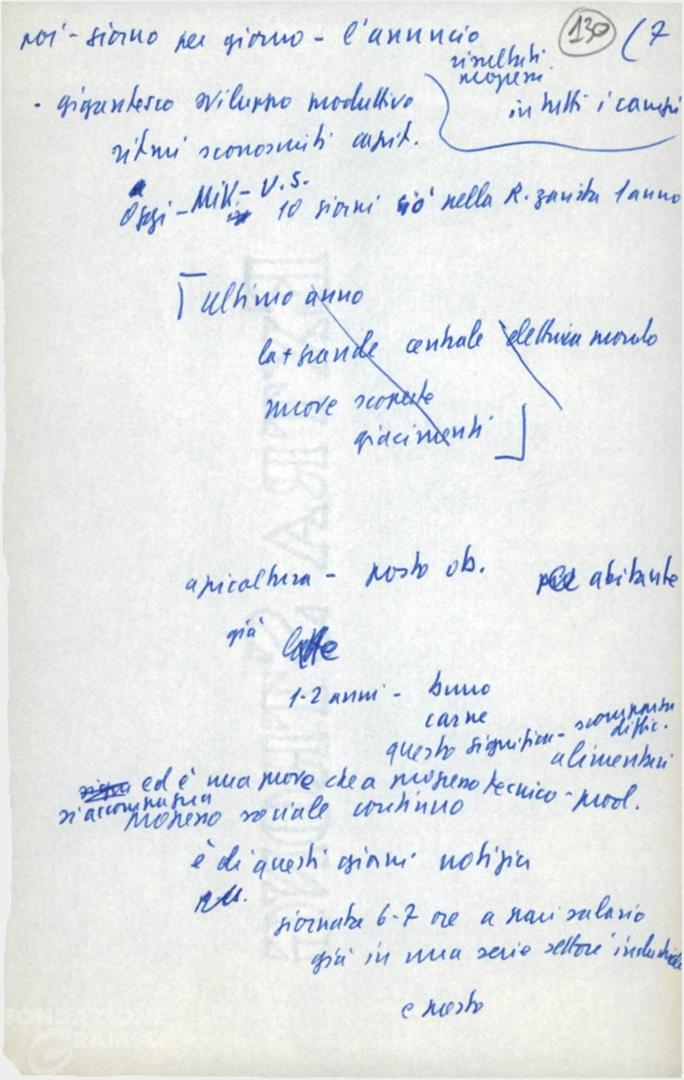 poi - giorno per giorno - l'annuncio
130
(7
risultati
progressi
in tutti i campi
- gigantesco sviluppo produttivo
ritmi sconosciuti capit.
Oggi - MiK. - U.S.
10 giorni ciò nella R. zarista 1 anno
ultimo anno
la + grande centrale elettrica mondo
nuove scoperte
giacimenti
agricoltura - posto ob. per abitante
già latte
1-2 anni - burro
carne
questo significa - scomparsa
diffic.
alimentari
ed è una prova che a progresso tecnico - prod.
si accompagna
progresso sociale continuo
è di questi giorni notizia
giornata 6-7 ore a pari salario
già in una serie settore industriale
e presto
FONDAZIONE
GRAMSCI